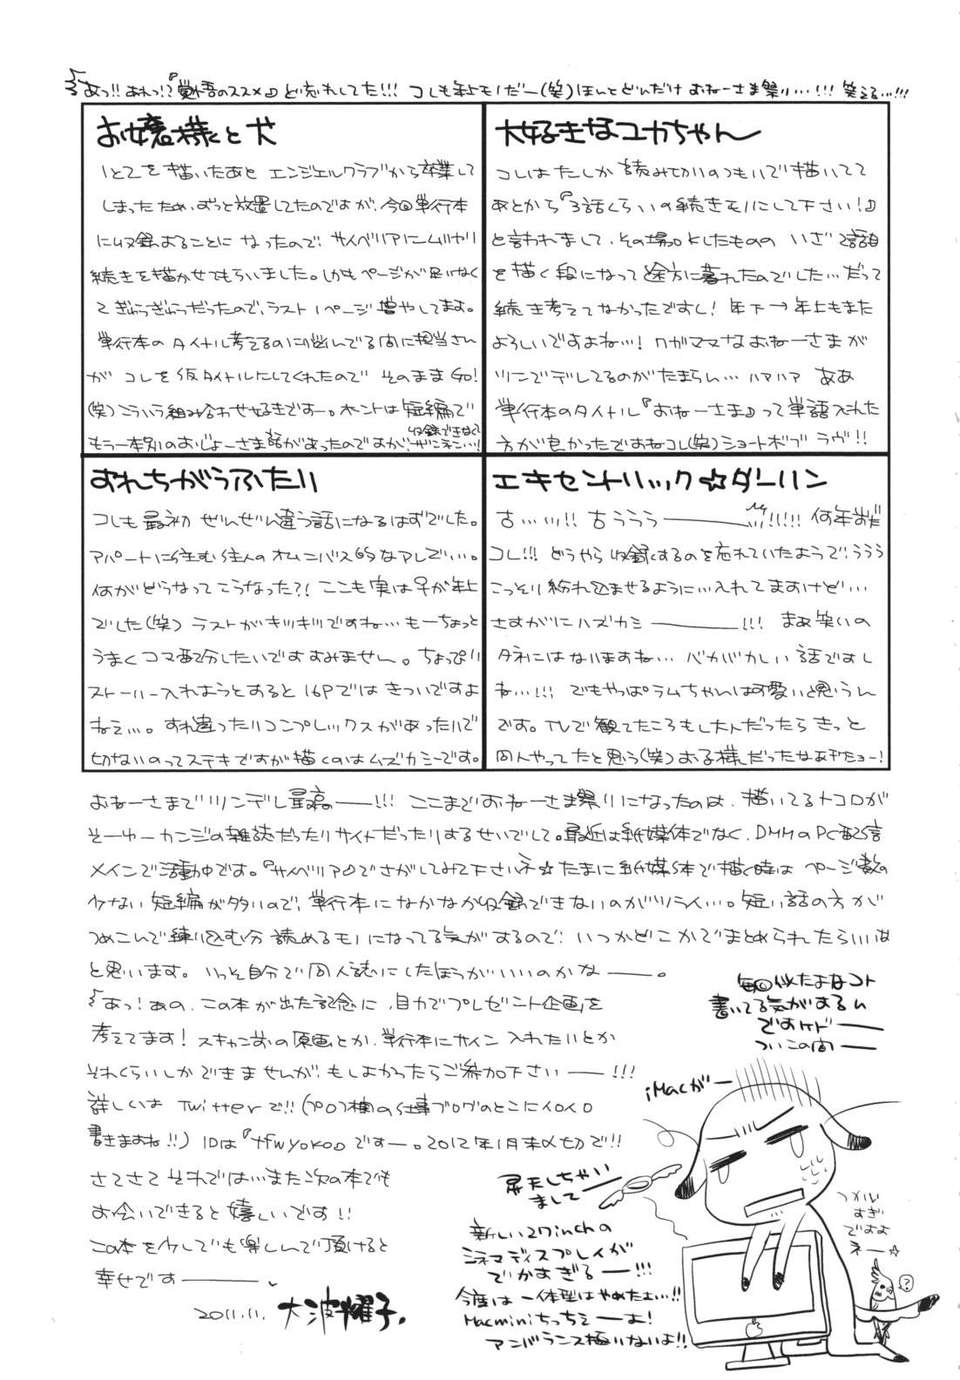 あっ!!あれっ!?『覚悟のススメ』ど忘れしてた!!! コレも年上モノだー(笑)ほんとどんだけ おねーさま祭り…!!! 笑える…!!!
お嬢様と犬
1と2を描いたあと エンジェルクラブから卒業して
しまったため、ずっと放置してたのですが、今回単行本
に収録することに なったので、サイベリアにムリヤリ
続きを描かせてもらいました。しかもページが足りなく
てぎゅうぎゅうだったので、ラスト1ページ増やしてます。
単行本のタイトル考えるのに悩んでる間に担当さん
が コレを仮タイトルにしてくれたので そのままGO!
(笑)こういう組み合わせ好きですー。ホントは短編で
もう一本別のおじょーさま話があったのですが、収録できなくてザンネン…!
大好きなユカちゃん
コレはたしか 読みきりのつもりで描いてて
あとから『3話くらいの続きモノにして下さい!』
と言われまして、その場OKしたものの いざ2話目
を描く段になって途方に暮れたのでした…だって
続き考えてなかったですし! 年下→年上もまた
よろしいですよね…! ワガママなおねーさまが
ツンでデレてるのがたまらん… ハァハァ ああ
単行本のタイトル『おねーさま』って単語入れた
方が良かったですねコレ(笑)ショートボブ ラヴ!!
すれちがうふたり
コレも最初 ぜんぜん違う話になるはずでした。
アパートに住む住人のオムニバス的なアレで…。
何がどうなってこうなった?! ここも実は♀が年上
でした(笑) ラストがギッチギチですね… もーちょっと
うまくコマ配分したいですすみません。ちょっぴり
ストーリー入れようとすると16Pではきついですよ
ねぇ…。すれ違ったりコンプレックスがあったりで
切ないのってステキですが描くのはムズカシーです。
エキセントリック☆ダーリン
古…ッ!! 古ううう――ッ!!!!! 何年前だ
コレ!!! どうやら収録するのを忘れていたようで、ううう
こっそり紛れ込ませるように…入れてますけど…
さすがにハズカシ――――!!! まぁ笑いの
タネにはなりますね… バカバカしい話ですし
ね…!!! でもやっぱラムちゃんは可愛いと思うん
です。TVで観てたころもし大人だったらきっと
同人やってたと思う(笑)お子様だったなあたしゃー!
おねーさまでツンデレ最高――!!! ここまでおねーさま祭りになったのは、描いてるトコロが
そーゆーカンジの雑誌だったりサイトだったりするせいでして。最近は紙媒体でなく、DMMのPC配信
メインで活動中です。『サイベリア』でさがしてみて下さいネ☆たまに紙媒体で描く時は ページ数の
少ない 短編が多いので、単行本になかなか収録できないのがツライ…。短い話の方が
つめこんで練り込む分 読めるモノになってる気がするので、いつかどこかでまとめられたらいいな
と思います。いっそ自分で同人誌にしたほうがいいのかな――。
あっ!あの、この本が出た記念に、自力でプレゼント企画を
考えてます! スキャン前の原画とか、単行本にサイン入れたいとか
それくらいしかできませんが、もしよかったらご参加下さい――!!!
詳しいは Twitterで!!(プロフ欄の仕事ブログのとこにイロイロ
書きますね!!) IDは『ffwyoko』ですー。2012年1月末〆切で!!
さてさて それでは…また次の本でも
お会いできると嬉しいです!!
この本を少しでも楽しんで頂けると
幸せです――――。
2011.11. 大波耀子.
毎回似たよなコト
書いてる気がするん
ですケド――
ついこの間――
iMacが―
昇天しちゃい
まして―
新しい27inchの
シネマディスプレイが
でかすぎる――!!!
今度は一体型はやめたよ…!!
Macminiちっちぇーよ!
アンバランス極りないよ!!
つかい
すぎ
ですよ
ネー☆
?